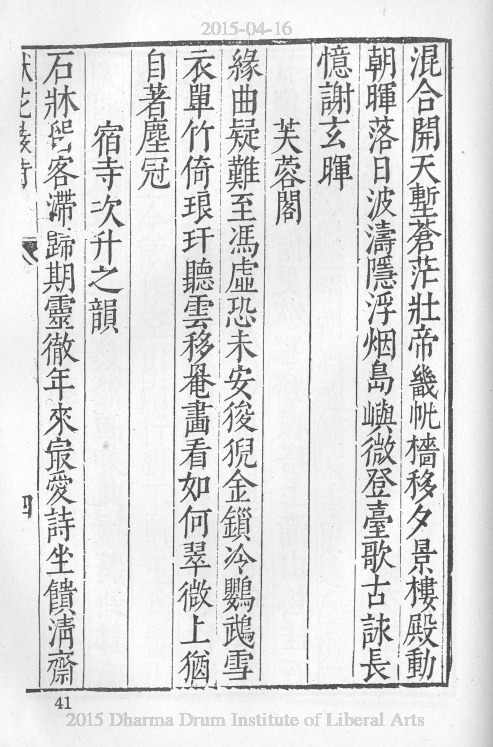 2015-04-16
混合開天塹蒼茫壯帝畿帆檣移夕景樓殿動
朝暉落日波濤隱浮烟島嶼微登臺歌古詠長
憶謝玄暉
芙蓉閣
緣曲疑難至馮虛恐未安狻猊金鎖冷鸚鵡雪
衣單竹倚琅玕聽雲移罨畫看如何翠微上猶
自著塵冠
宿寺次升之韻
石牀留客滯歸期靈徹年來㝡愛詩坐饋清齋
四
41
2015 Dharma Drum Institute of Liberal Arts